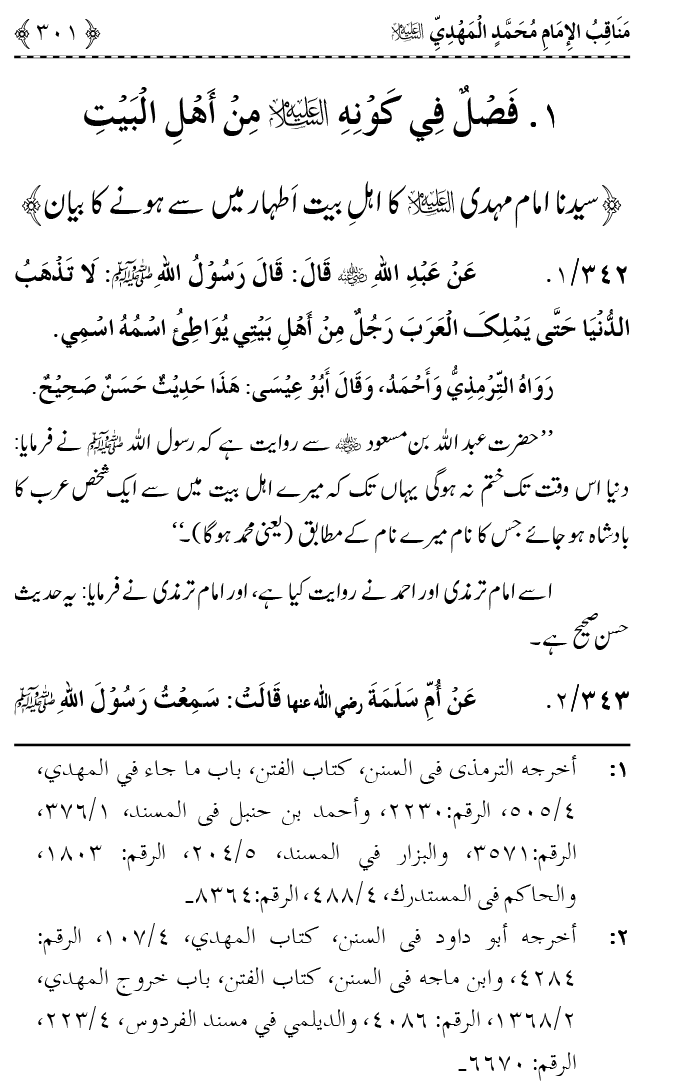 مَنَاقِبُ الإِمَامِ مُحَمَّدٍ الْمَهْدِيِّ عليه السلام ﴿٣٠١﴾
١. فَصْلٌ فِي كَوْنِهِ عليه السلام مِنْ أَهْلِ الْبَيْتِ
﴿سیدنا امام مہدی علیہ السلام کا اہلِ بیت اَطہار میں سے ہونے کا بیان﴾
١/٣٤٢. عَنْ عَبْدِ اللهِ رضي الله عنه قَالَ: قَالَ رَسُوْلُ اللهِ ﷺ: لَا تَذْهَبُ
الدُّنْيَا حَتَّى يَمْلِکَ الْعَرَبَ رَجُلٌ مِنْ أَهْلِ بَيْتِي يُوَاطِئُ اسْمُهُ اسْمِي.
رَوَاهُ التِّرْمِذِيُّ وَأَحْمَدُ، وَقَالَ أَبُوْ عِيْسَى: هَذَا حَدِيْثٌ حَسَنٌ صَحِيْحٌ.
’’حضرت عبد اللہ بن مسعود رضی اللہ عنہ سے روایت ہے کہ رسول اللہ ﷺ نے فرمایا:
دنیا اس وقت تک ختم نہ ہوگی یہاں تک کہ میرے اہل بیت میں سے ایک شخص عرب کا
بادشاہ ہو جائے جس کا نام میرے نام کے مطابق (یعنی محمد ہوگا)۔‘‘
اسے امام ترمذی اور احمد نے روایت کیا ہے، اور امام ترمذی نے فرمایا: یہ حدیث
حسن صحیح ہے۔
٢/٣٤٣. عَنْ أُمِّ سَلَمَةَ رضي الله عنها قَالَتْ: سَمِعْتُ رَسُوْلَ اللهِ ﷺ
١: أخرجه الترمذى فى السنن، كتاب الفتن، باب ما جاء في المهدي،
٤/٥٠٥، الرقم:٢٢٣٠، وأحمد بن حنبل فى المسند، ١/٣٧٦،
الرقم:٣٥٧١، والبزار في المسند، ٥/٢٠٤، الرقم: ١٨٠٣،
والحاكم فى المستدرك، ٤/٤٨٨، الرقم:٨٣٦٤۔
٢: أخرجه أبو داود فى السنن، كتاب المهدي، ٤/١٠٧، الرقم:
٤٢٨٤، وابن ماجه فى السنن، كتاب الفتن، باب خروج المهدي،
٢/١٣٦٨، الرقم: ٤٠٨٦، والديلمي في مسند الفردوس، ٤/٢٢٣،
الرقم: ٦٦٧٠۔